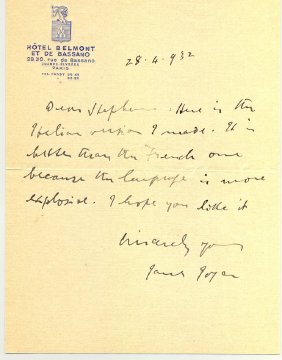 HÔTEL BELMONT
ET DE BASSANO
28.30. rue de Bassano
CHAMPS-ELYSÉES
PARIS
28.4.932
Dear Stephens. Here is the
Italian version I made. It is
better than the French one
because the language is more
explosive. I hope you like it
Sincerely yours
James Joyce